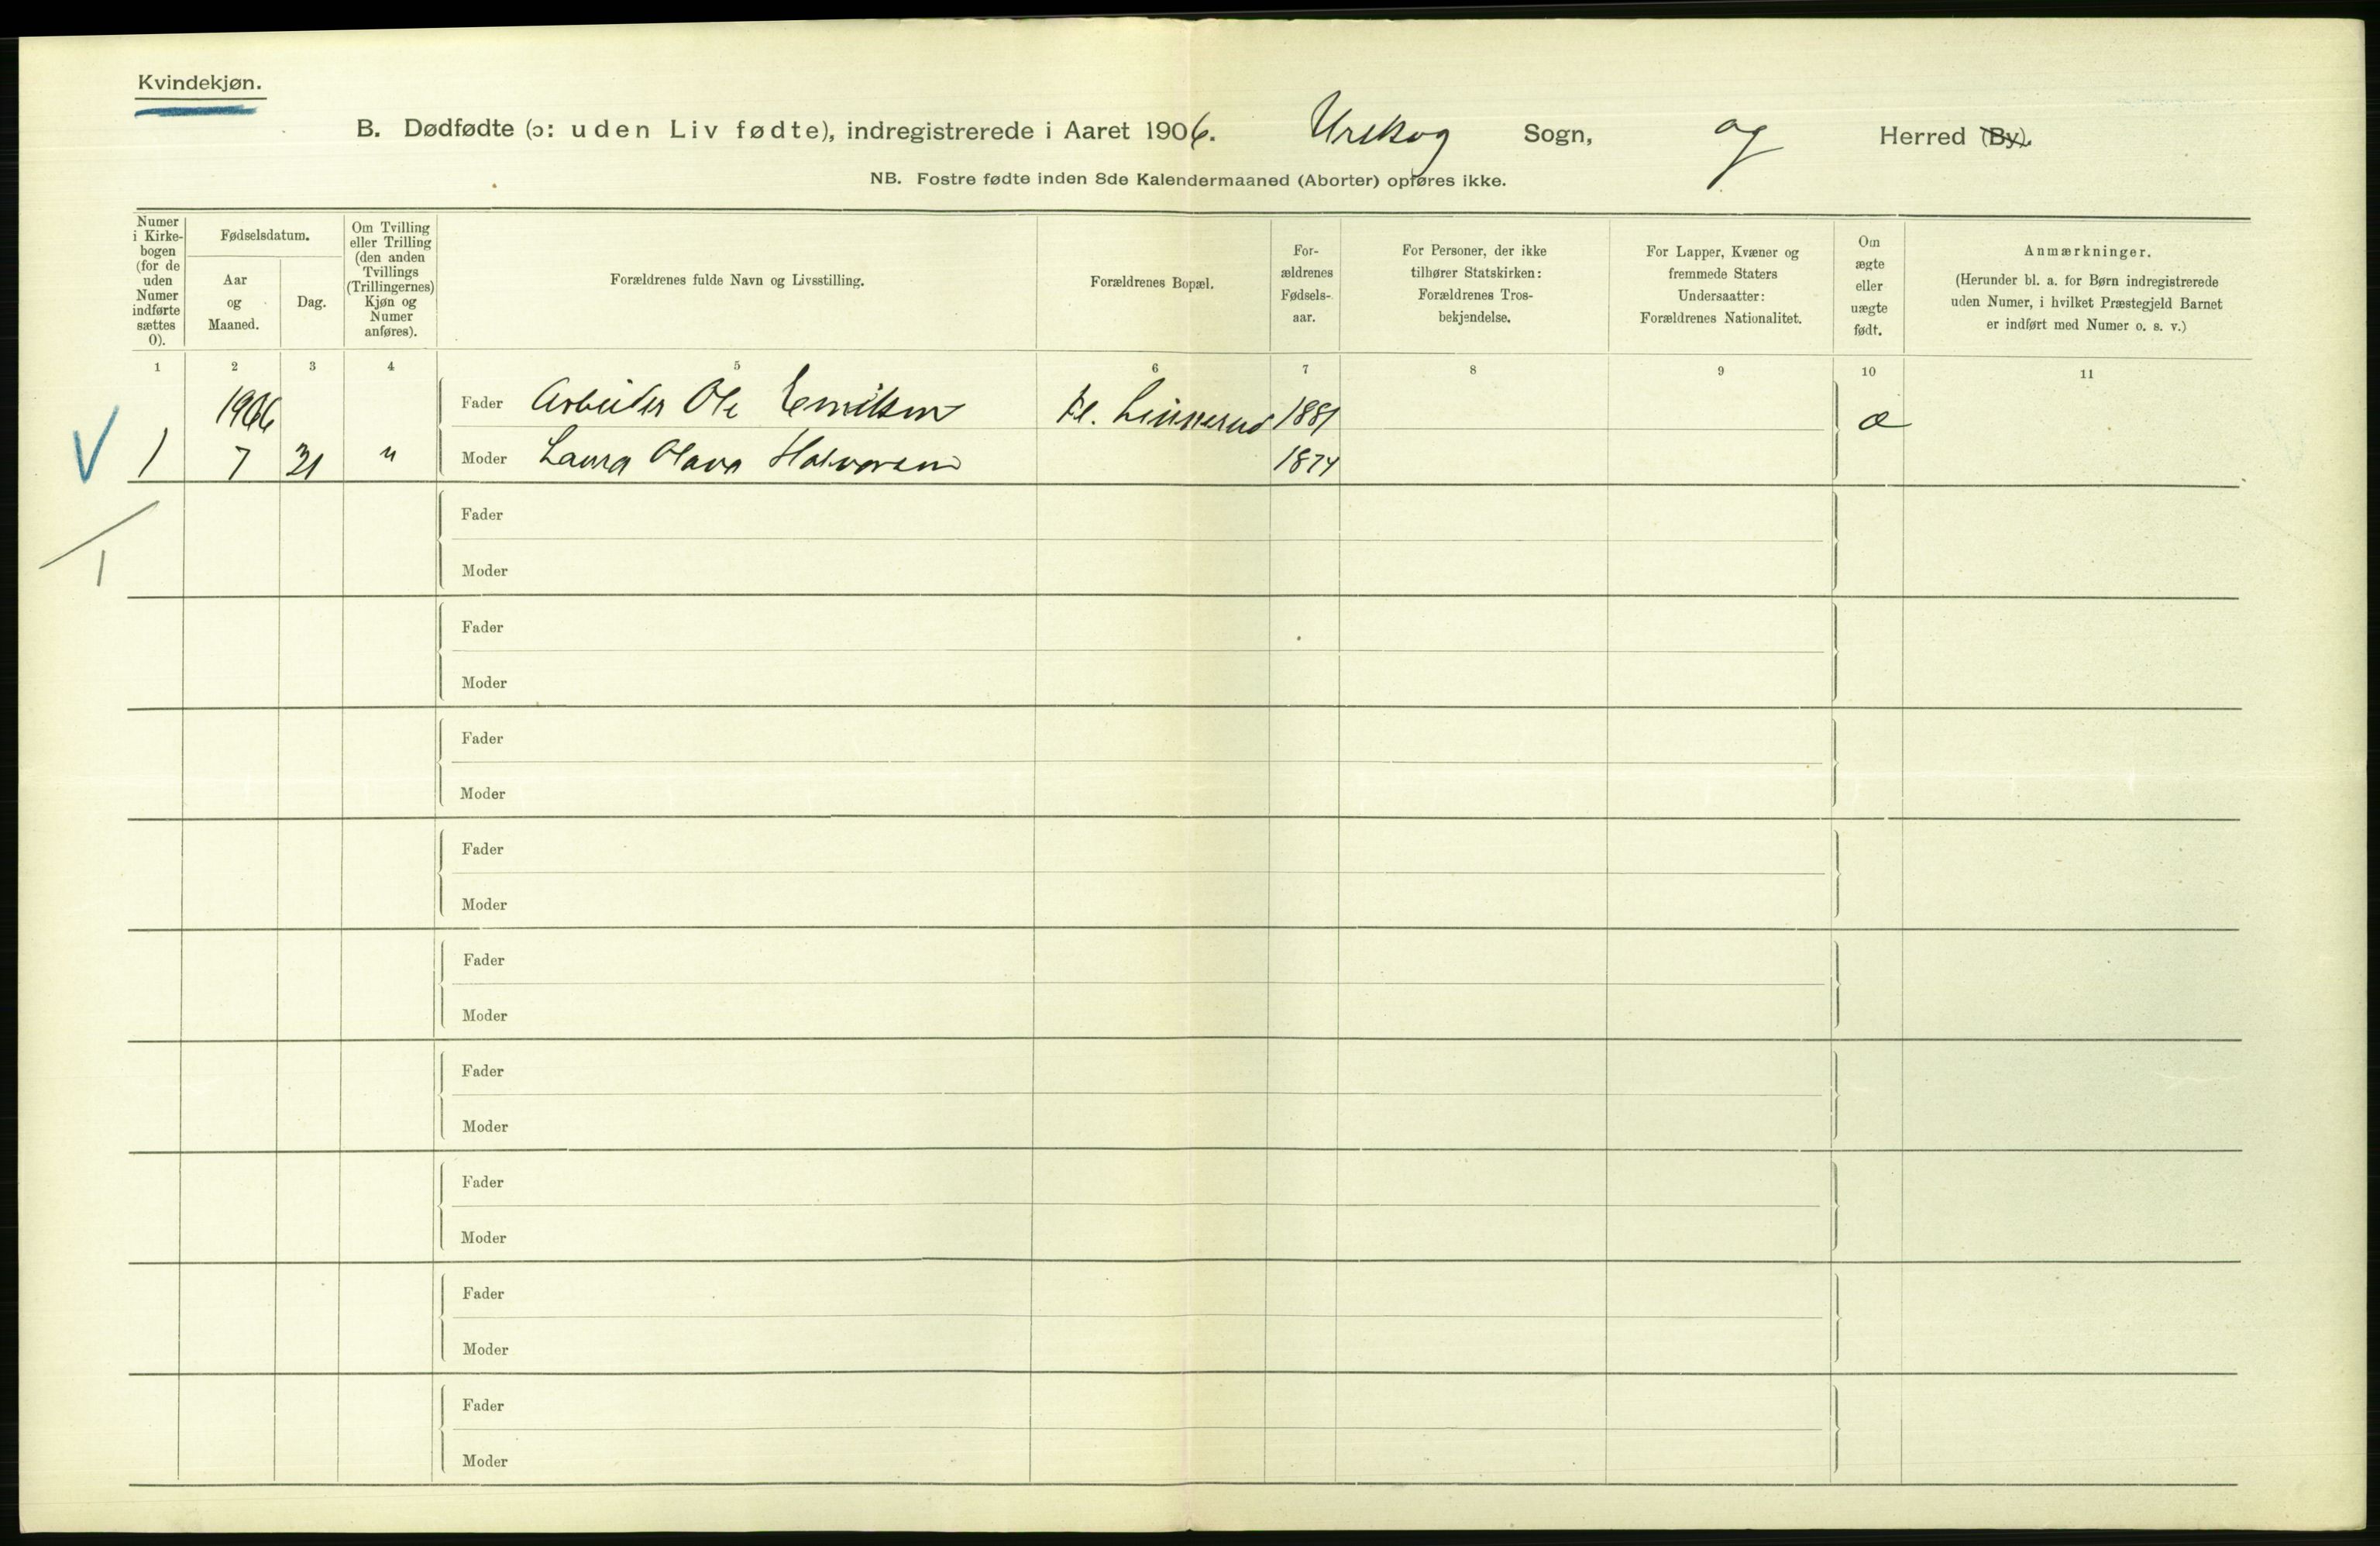 Kvindekjøn.
B. Dødfødte (ɔ: uden Liv fødte), indregistrerede i Aaret 1906. Urskog Sogn, og Herred (By).
NB. Fostre fødte inden 8de Kalendermaaned (Aborter) opføres ikke.
Numer i Kirke-bogen (for de uden Numer indførte sættes 0).
Fødselsdatum.
Aar og Maaned.
Dag.
Om Tvilling eller Trilling (den anden Tvillings (Trillingernes) Kjøn og Numer anføres).
Forældrenes fulde Navn og Livsstilling.
Forældrenes Bopæl.
For-ældrenes Fødsels-aar.
For Personer, der ikke tilhører Statskirken: Forældrenes Tros-bekjendelse.
For Lapper, Kvæner og fremmede Staters Undersaatter: Forældrenes Nationalitet.
Om ægte eller uægte født.
Anmærkninger.
(Herunder bl. a. for Børn indregistrerede uden Numer, i hvilket Præstegjeld Barnet er indført med Numer o. s. v.)
1 2 3 4 5 6 7 8 9 10 11
1906 Fader Arbeider Ole Emilsen 1881 æ
V 1 7 31 " Moder Laura Olava Halvorsen 1874
Fader
1
Moder
Fader
Moder
Fader
Moder
Fader
Moder
Fader
Moder
Fader
Moder
Fader
Moder
Fader
Moder
Fader
Moder